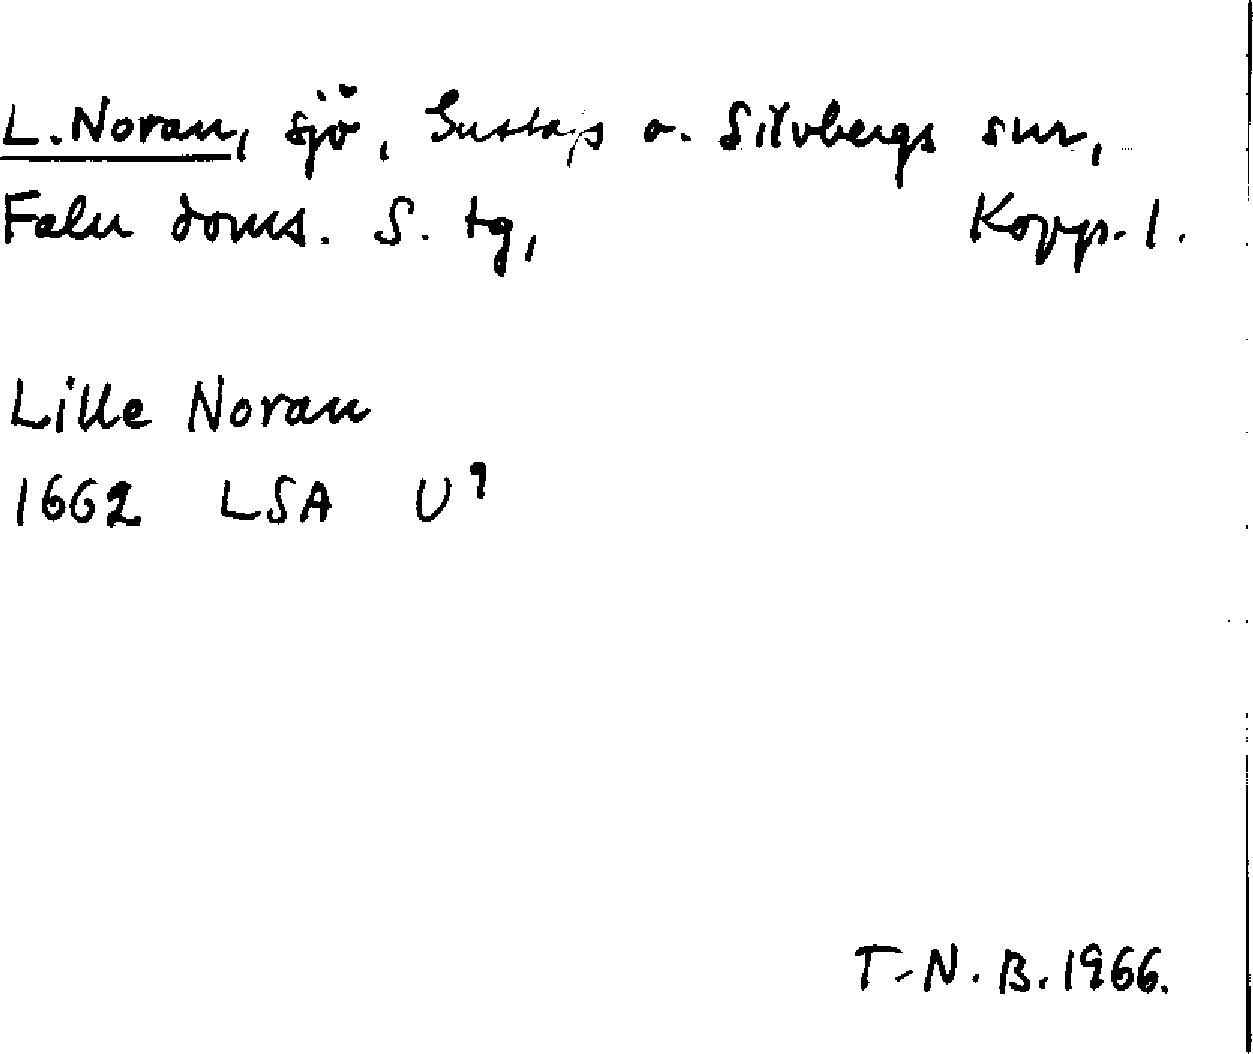 L. Noran, sjö, Gustafs o. Silvbergs snr,
Falu doms. S. tg, Kopp. l.
Lille Noran
1662 LSA U⁹
T-N. B. 1966.